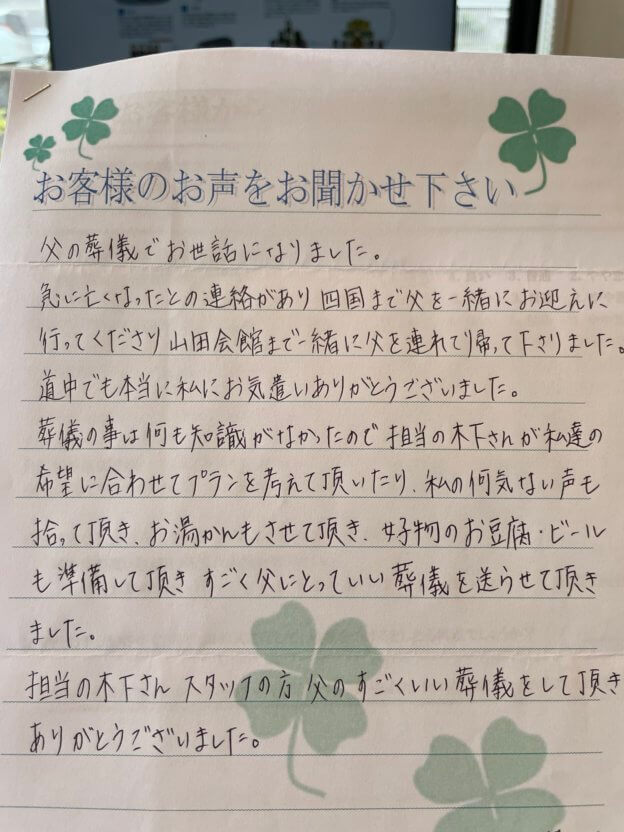 お客様のお声をお聞かせ下さい
父の葬儀でお世話になりました。
急に亡くなったとの連絡があり 四国まで父を一緒にお迎えに
行ってくださり 山田会館まで一緒に父を連れて帰って下さりました。
道中でも本当に私にお気遣いありがとうございました。
葬儀の事は何も知識がなかったので 担当の木下さんが私達の
希望に合わせてプランを考えて頂いたり、私の何気ない声も
拾って頂き、お湯かんもさせて頂き、好物のお豆腐・ビール
も準備して頂き すごく父にとっていい葬儀を送らせて頂き
ました。
担当の木下さん スタッフの方 父のすごくいい葬儀をして頂き
ありがとうございました。